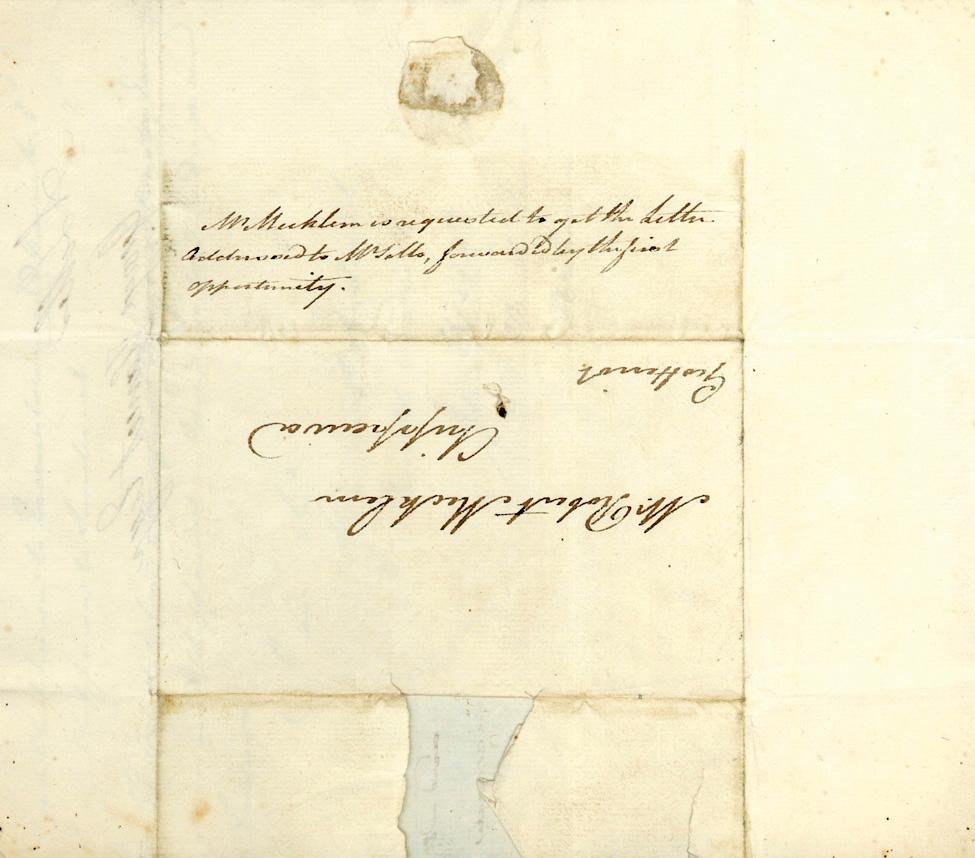 Mr Mecklem is requested to get the Letter
Addressed to Mr Sells, forwarded by the first
opportunity.
Mr. Robert Mecklem
Chippewa